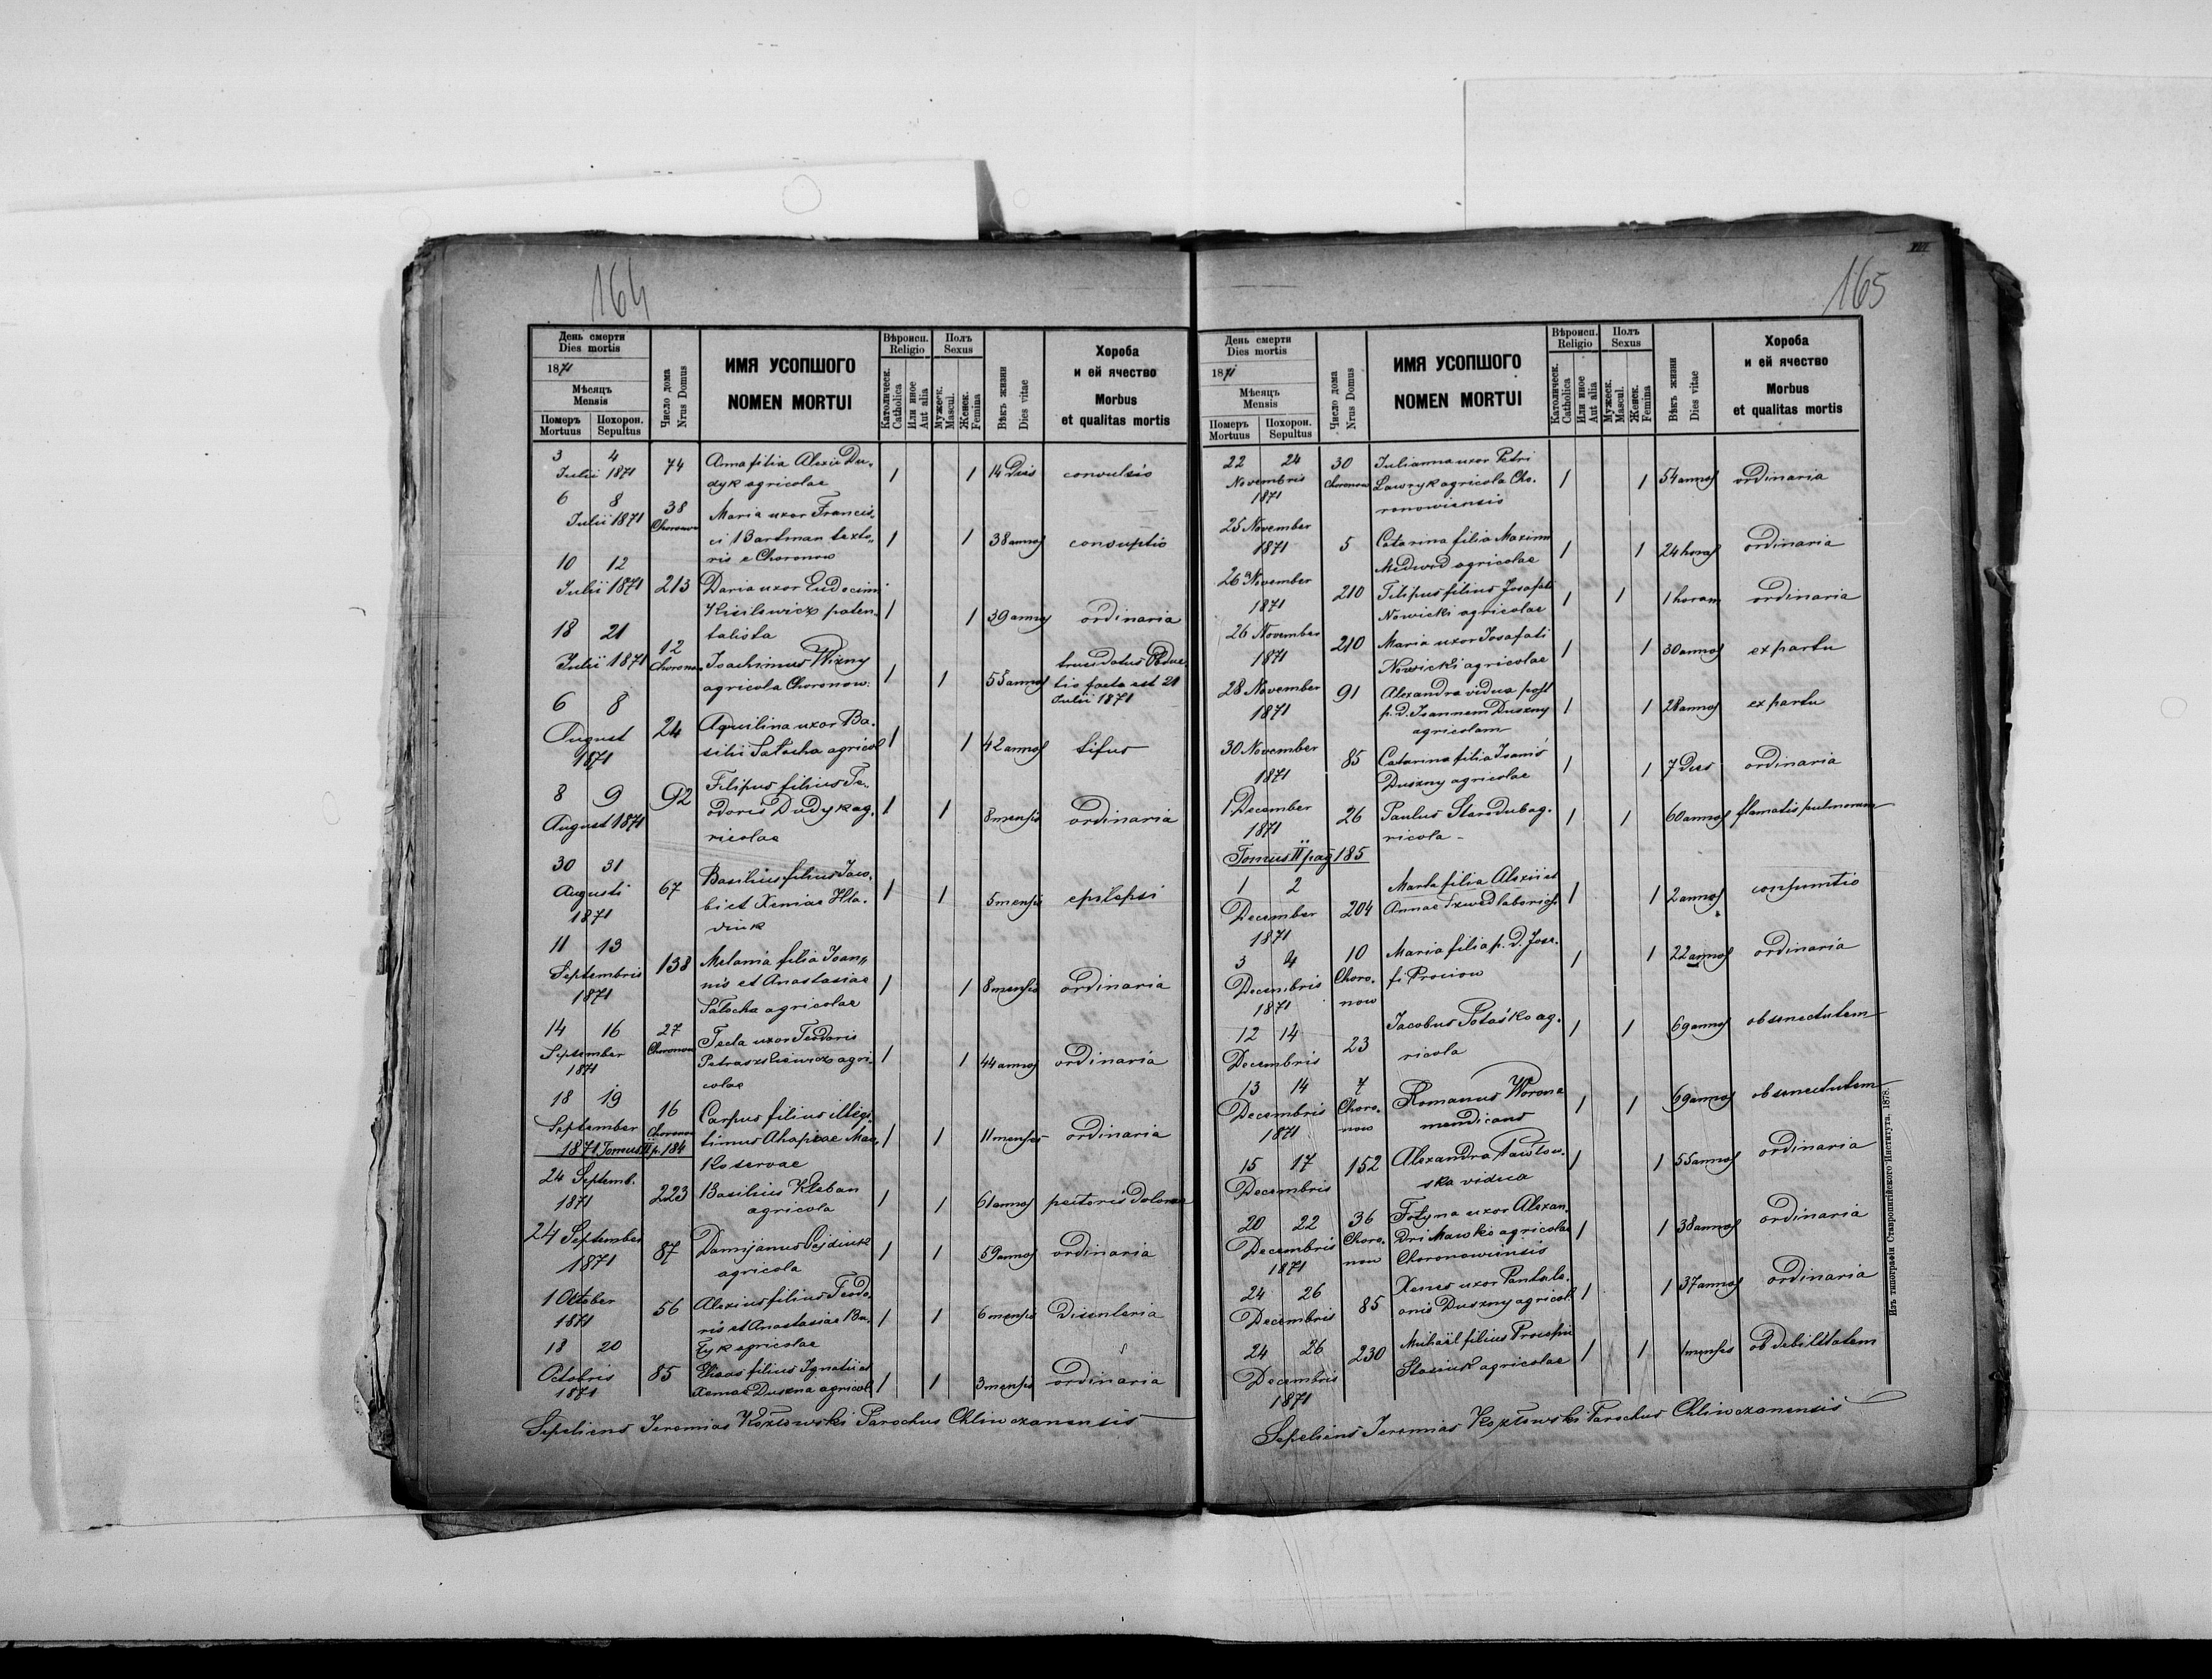 164
День смерти
Dies mortis
1871
Мѣсяцъ
Mensis
Померъ
Mortuus
Похорон.
Sepultus
Число дома
Nrus Domus
ИМЯ УСОПШОГО
NOMEN MORTUI
Вѣроисп.
Religio
Католическ.
Catholica
Или иное
Aut alia
Полъ
Sexus
Мужеск.
Mascul.
Женск.
Femina
Вѣкъ жизни
Dies vitae
Хороба
и ей ячество
Morbus
et qualitas mortis
3 4 74 Anna filia Alexii Du-
Julii 1871 dyk agricolae 1 1 14 Dies convulsio
6 8 38 Maria uxor Francis-
Julii 1871 Choronow ci Bartman texto-
ris e Choronow 1 1 38 annos consuptio
10 12
Julii 1871 213 Daria uxor Eudocimi
Kisilewicz paten-
talista 1 1 39 annos ordinaria
18 21 12
Julii 1871 Choronow Joachimus Wizny
agricola Choronow: 1 1 55 annos trucidatus Obduc
tio facta est 21
Julii 1871
6 8
August 24 Aquilina uxor Ba-
1871 silii Satocha agricol 1 1 42 annos tifus
8 9 92 Filipus filius Te-
August 1871 odoris Dudyk ag-
ricolae 1 1 8 mensis ordinaria
30 31
Augusti 67 Basilius filius Jaco-
1871 bi et Xemae Hla-
diuk 1 1 5 mensis epilepsi
11 13
Septembris 138 Melania filia Joan-
1871 nis et Anastasiae
Satocha agricolae 1 1 8 mensis ordinaria
14 16 27
September Choronow Tecla uxor Teodoris
1871 Petraszkiewicz agri-
colae 1 1 44 annos ordinaria
18 19 16
September Choronow Carpus filius illegi-
1871 Tomus II p. 184 timus Ahapiae Mac-
koservae 1 1 11 menses ordinaria
24 Septemb.
1871 223 Basilius Kleban
agricola 1 1 61 annos pectoris dolores
24 September
1871 87 Damijanus Pajdiuk
agricola 1 1 59 annos ordinaria
1 October
1871 56 Alexius filius Teodo-
ris et Anastasiae Ba-
tyk agricolae 1 1 6 mensis disenteria
18 20
Octobris 85 Elias filius Ignatii et
1871 Xemae Duszna agricol 1 1 3 mensis ordinaria
Sepeliens Jeremias Kozłowski Parochus Chliwczanensis
165
День смерти
Dies mortis
1871
Мѣсяцъ
Mensis
Померъ
Mortuus
Похорон.
Sepultus
Число дома
Nrus Domus
ИМЯ УСОПШОГО
NOMEN MORTUI
Вѣроисп.
Religio
Католическ.
Catholica
Или иное
Aut alia
Полъ
Sexus
Мужеск.
Mascul.
Женск.
Femina
Вѣкъ жизни
Dies vitae
Хороба
и ей ячество
Morbus
et qualitas mortis
22 24 30 Julianna uxor Petri
Novembris Choronow Lawryk agricola Cho-
1871 ronowiensis 1 1 54 annos ordinaria
25 November
1871 5 Catarina filia Maximi
Medwid agricolae 1 1 24 horas ordinaria
26 November
1871 210 Filipus filius Josafati
Nowicki agricolae 1 1 1 horam ordinaria
26 November
1871 210 Maria uxor Josafati
Nowicki agricolae 1 1 30 annos ex partu
28 November 91 Alexandra vidua post
1871 p. d. Joannem Duszny
agricolam 1 1 28 annos ex partu
30 November
1871 85 Catarina filia Joanis
Duszny agricolae 1 1 7 Dies ordinaria
1 December
1871 26 Paulus Starodub ag-
ricola - 1 1 60 annos flamatis pulmorum
Tomus II pag 185
1 2
December 204 Marta filia Alexii et
1871 Annae Szwed laborios 1 1 2 annos consumtio
3 4 10
Decembris Choro- Maria filia p. d. Jose-
1871 now fi Prociow 1 1 22 annos ordinaria
12 14
Decembris 23 Jacobus Potaśko ag-
ricola 1 1 69 annos ob senectutem
13 14 7
Decembris Choro- Romanus Worona
1871 now mendicans 1 1 69 annos ob senectutem
15 17 152 Alexandra Pawłow-
Decembris ska vidua 1 1 55 annos ordinaria
20 22 36 Fotyna uxor Alexan-
Decembris Choro- dri Mawko agricolae
1871 now Choronowiensis 1 1 38 annos ordinaria
24 26
Decembris 85 Xenes uxor Pantale-
onis Duszny agricol 1 1 37 annos ordinaria
24 26 230 Michaël filius Procopii
Decembris Stasiuk agricolae 1 1 1 menses ob debilitatem
1871
Sepeliens Jeremias Kozłowski Parochus Chliwczanensis
Изъ типографіи Ставропигійского Института, 1878.